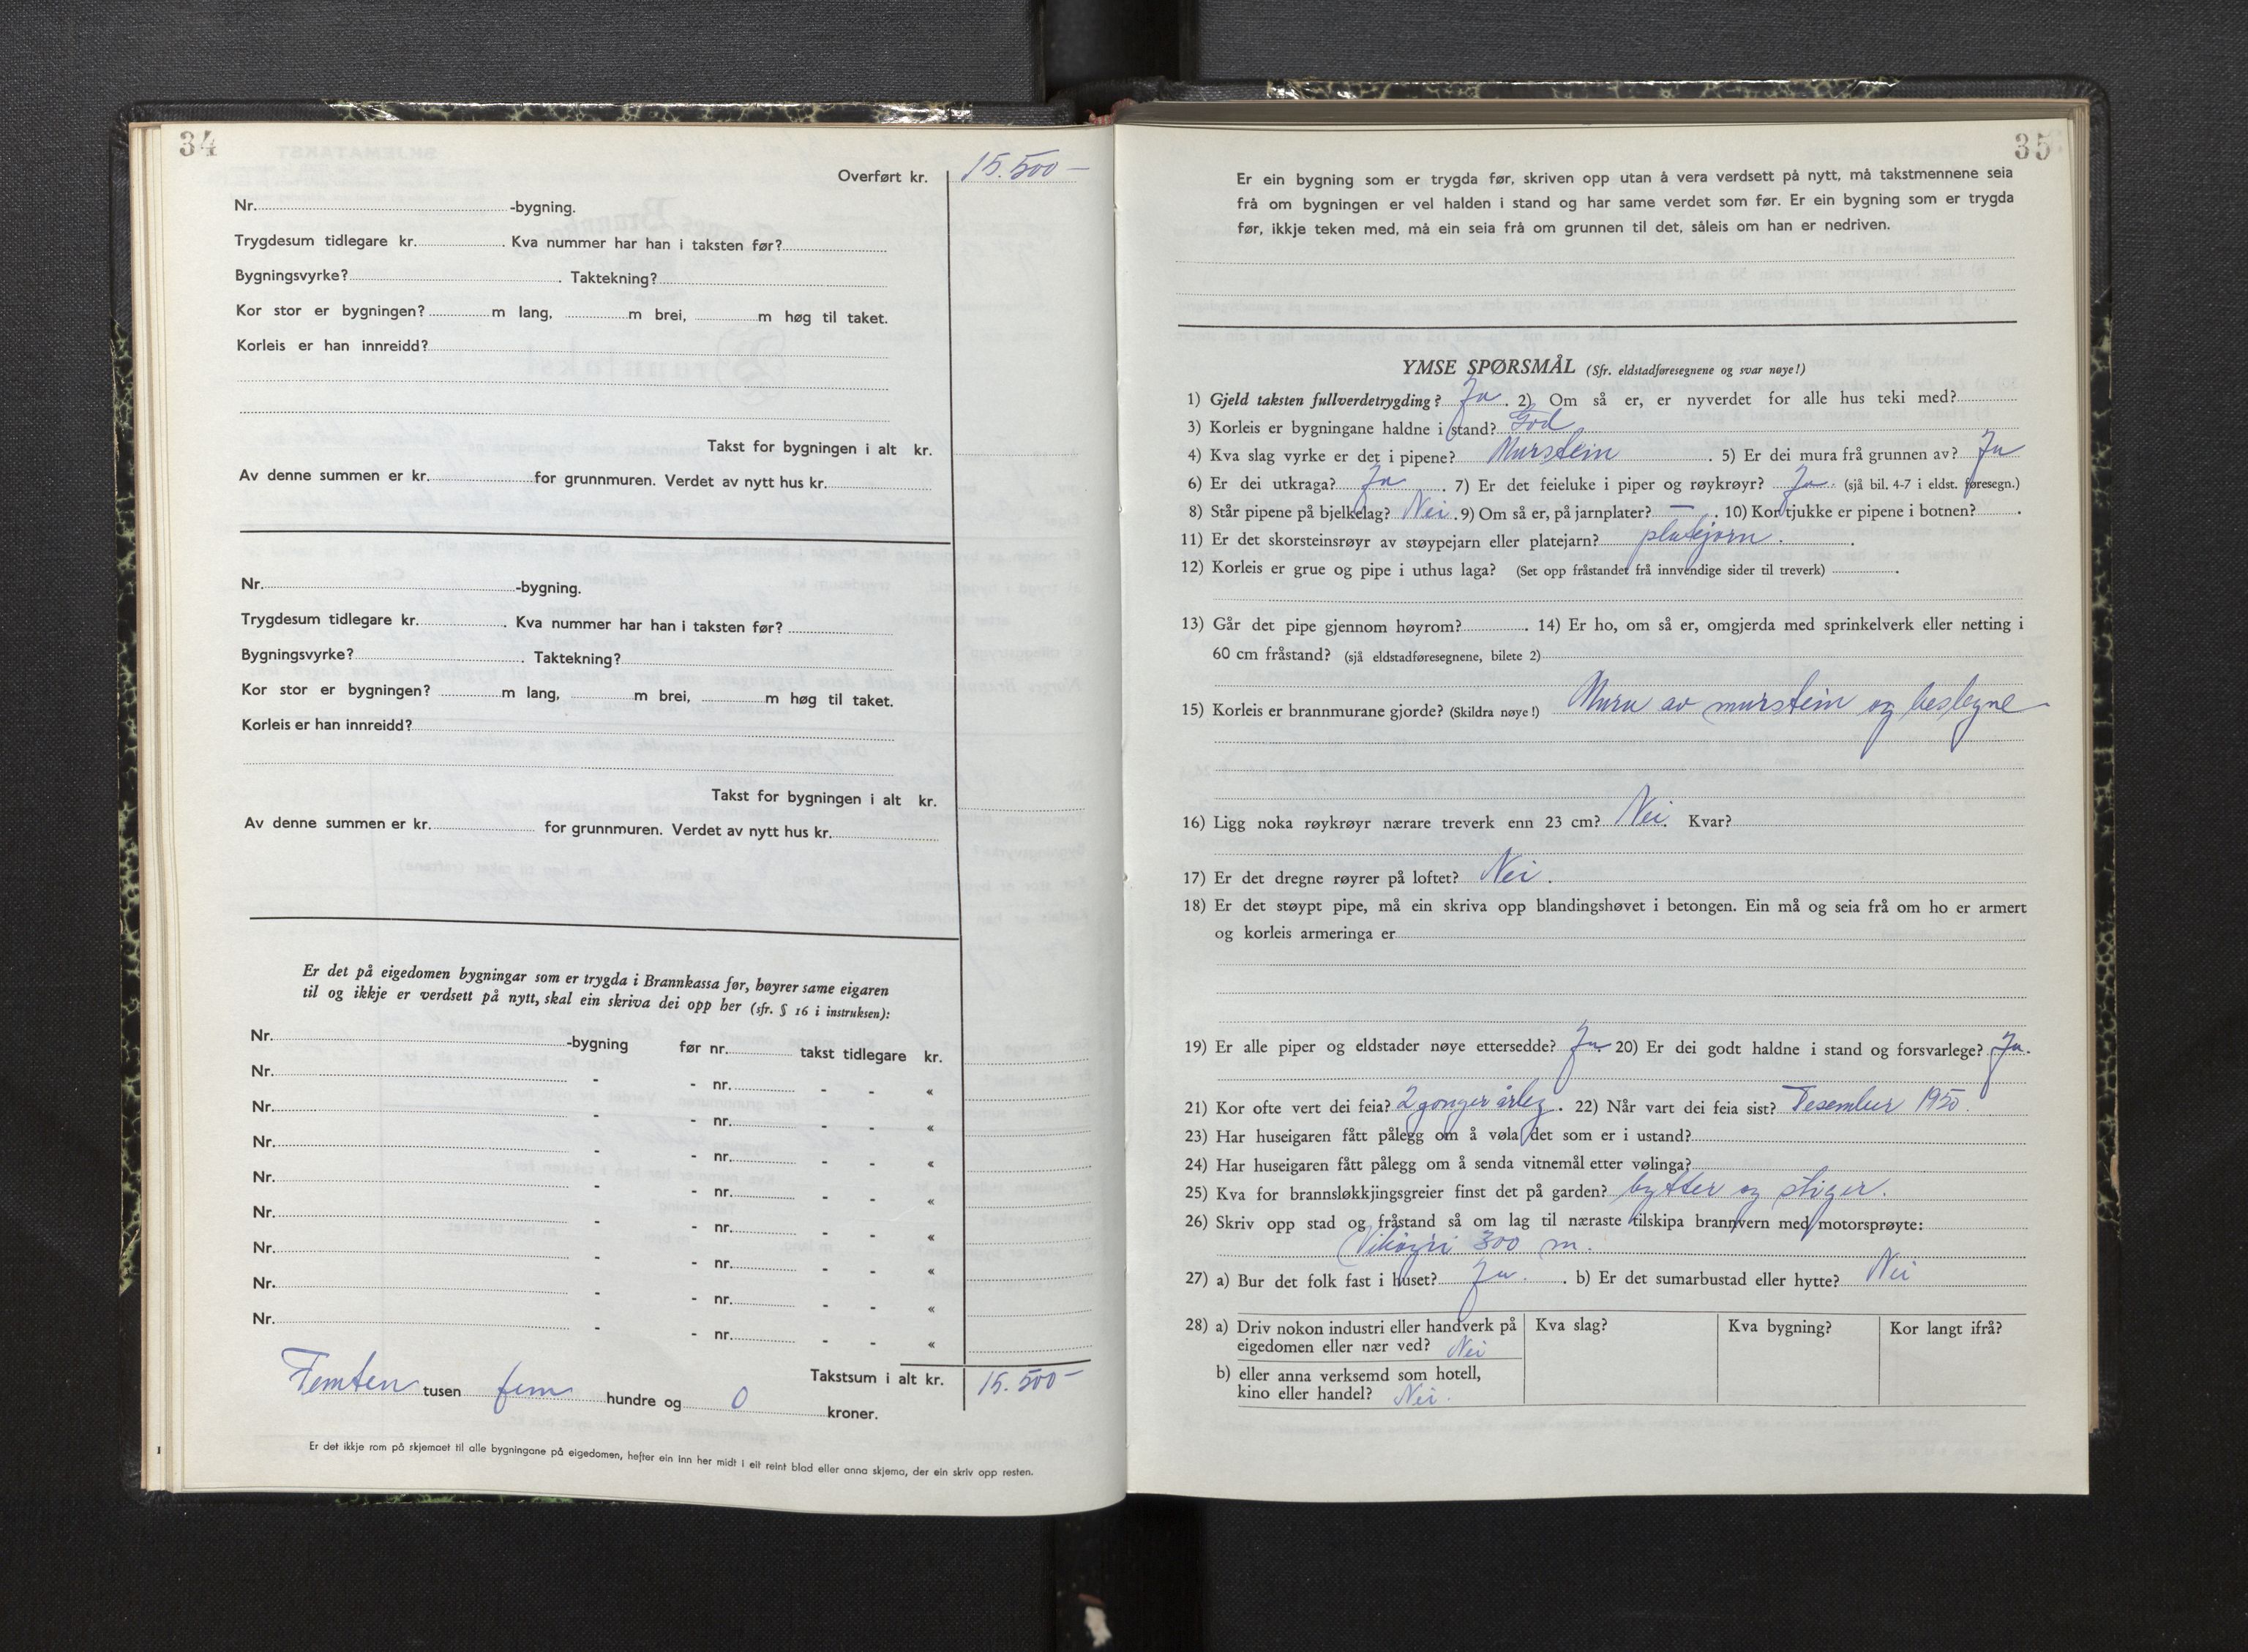 34
Overført kr. 15.500 —
Nr. -bygning.
Trygdesum tidlegare kr. . Kva nummer har han i taksten før?
Bygningsvyrke? . Taktekning?
Kor stor er bygningen? m lang, m brei, m høg til taket.
Korleis er han innreidd?
Takst for bygningen i alt kr.
Av denne summen er kr. for grunnmuren. Verdet av nytt hus kr.
Nr. -bygning.
Trygdesum tidlegare kr. . Kva nummer har han i taksten før?
Bygningsvyrke? . Taktekning?
Kor stor er bygningen? m lang, m brei, m høg til taket.
Korleis er han innreidd?
Takst for bygningen i alt kr.
Av denne summen er kr. for grunnmuren. Verdet av nytt hus kr.
Er det på eigedomen bygningar som er trygda i Brannkassa før, høyrer same eigaren
til og ikkje er verdsett på nytt, skal ein skriva dei opp her (sfr. § 16 i instruksen):
Nr. -bygning før nr. takst tidlegare kr.
Nr. - - nr. - - «
Nr. - - nr. - - «
Nr. - - nr. - - «
Nr. - - nr. - - «
Nr. - - nr. - - «
Nr. - - nr. - - «
Nr. - - nr. - - «
Nr. - - nr. - - «
Takstsum i alt kr. 15.500 —
Femten tusen fem hundre og 0 kroner.
Er det ikkje rom på skjemaet til alle bygningane på eigedomen, hefter ein inn her midt i eit reint blad eller anna skjema, der ein skriv opp resten.
1
35
Er ein bygning som er trygda før, skriven opp utan å vera verdsett på nytt, må takstmennene seia
frå om bygningen er vel halden i stand og har same verdet som før. Er ein bygning som er trygda
før, ikkje teken med, må ein seia frå om grunnen til det, såleis om han er nedriven.
YMSE SPØRSMÅL (Sfr. eldstadføresegnene og svar nøye!)
1) Gjeld taksten fullverdetrygding? Ja . 2) Om så er, er nyverdet for alle hus teki med?
3) Korleis er bygningane haldne i stand? God
4) Kva slag vyrke er det i pipene? Murstein . 5) Er dei mura frå grunnen av? Ja
6) Er dei utkraga? Ja . 7) Er det feieluke i piper og røykrøyr? Ja . (sjå bil. 4-7 i eldst. føresegn.)
8) Står pipene på bjelkelag? Nei . 9) Om så er, på jarnplater? — . 10) Kor tjukke er pipene i botnen? .
11) Er det skorsteinsrøyr av støypejarn eller platejarn? platejarn .
12) Korleis er grue og pipe i uthus laga? (Set opp fråstandet frå innvendige sider til treverk) .
13) Går det pipe gjennom høyrom? . 14) Er ho, om så er, omgjerda med sprinkelverk eller netting i
60 cm fråstand? (sjå eldstadføresegnene, bilete 2)
15) Korleis er brannmurane gjorde? (Skildra nøye!) Mura av murstein og beslegne
16) Ligg noka røykrøyr nærare treverk enn 23 cm? Nei. Kvar?
17) Er det dregne røyrer på loftet? Nei .
18) Er det støypt pipe, må ein skriva opp blandingshøvet i betongen. Ein må og seia frå om ho er armert
og korleis armeringa er
19) Er alle piper og eldstader nøye ettersedde? Ja 20) Er dei godt haldne i stand og forsvarlege? Ja.
21) Kor ofte vert dei feia? 2 gonger årleg . 22) Når vart dei feia sist? Desember 1950.
23) Har huseigaren fått pålegg om å vøla det som er i ustand?
24) Har huseigaren fått pålegg om å senda vitnemål etter vølinga?
25) Kva for brannsløkkjingsgreier finst det på garden? bytter og stiger.
26) Skriv opp stad og fråstand så om lag til næraste tilskipa brannvern med motorsprøyte:
Vikøyri 300 m.
27) a) Bur det folk fast i huset? Ja . b) Er det sumarbustad eller hytte? Nei
28) a) Driv nokon industri eller handverk på eigedomen eller nær ved? Nei Kva slag? Kva bygning? Kor langt ifrå?
b) eller anna verksemd som hotell,
kino eller handel? Nei .